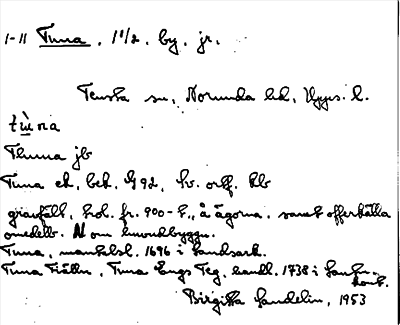 I-II Tuna, 1 1/2. by. jr.
Tensta sn, Norunda hd, Upps. l.
tùna
Thuna jb
Tuna ek, bek. G 92, kv. orff. kb
gravfält, hol. fr. 900-t., å ägorna, samt offerkälla
omedelb. N om huvudbyggn.
Tuna, mantalsl. 1696 i Landsark.
Tuna Fiälln, Tuna Engs Teg, handl. 1738 i Lantm.-
kont.
Birgitta Sandelin, 1953